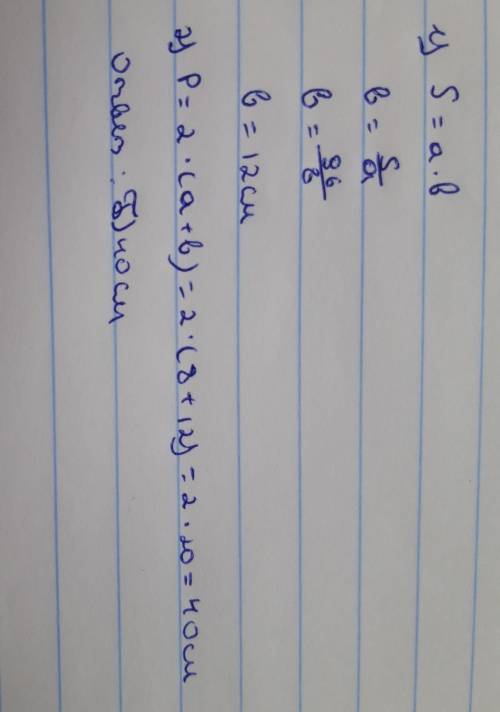 1) S = a · b
b = S/a
b = 96/8
b = 12 см
2) P = 2 · (a + b) = 2 · (8 + 12) = 2 · 20 = 40 см
Ответ: Б) 40 см